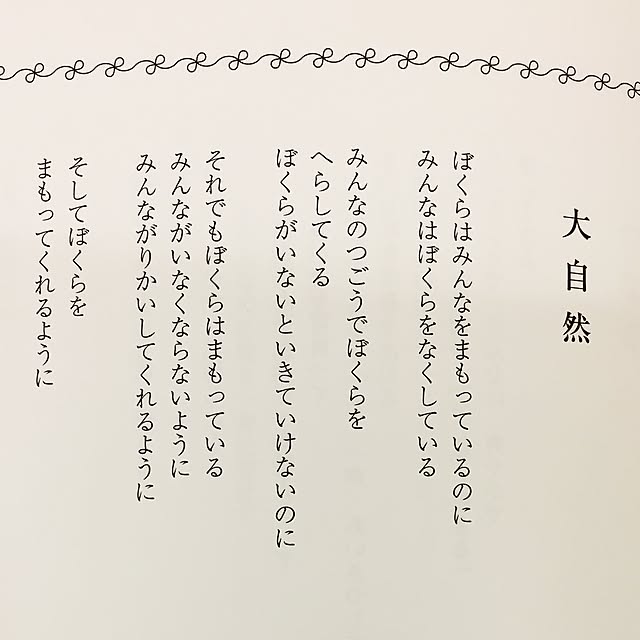 大自然
ぼくらはみんなをまもっているのに
みんなはぼくらをなくしている
みんなのつごうでぼくらを
へらしてくる
ぼくらがいないといきていけないのに
それでもぼくらはまもっている
みんながいなくならないように
みんながりかいしてくれるように
そしてぼくらを
まもってくれるように